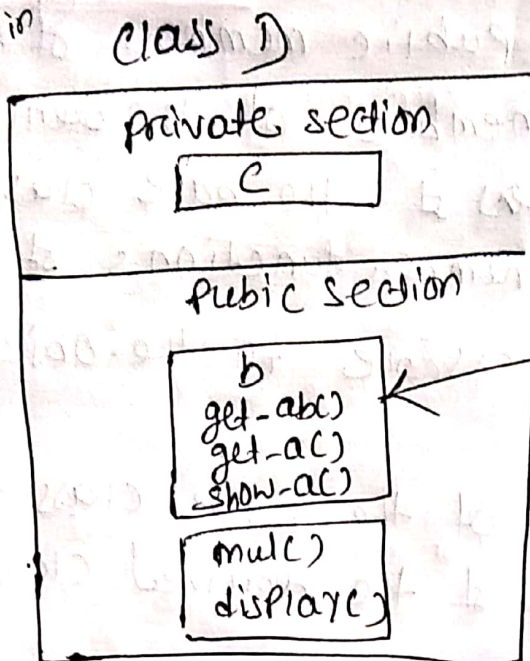 in
class D
private section
c
Pubic section
b
get-ab()
get-a()
show-a()
mul()
display()